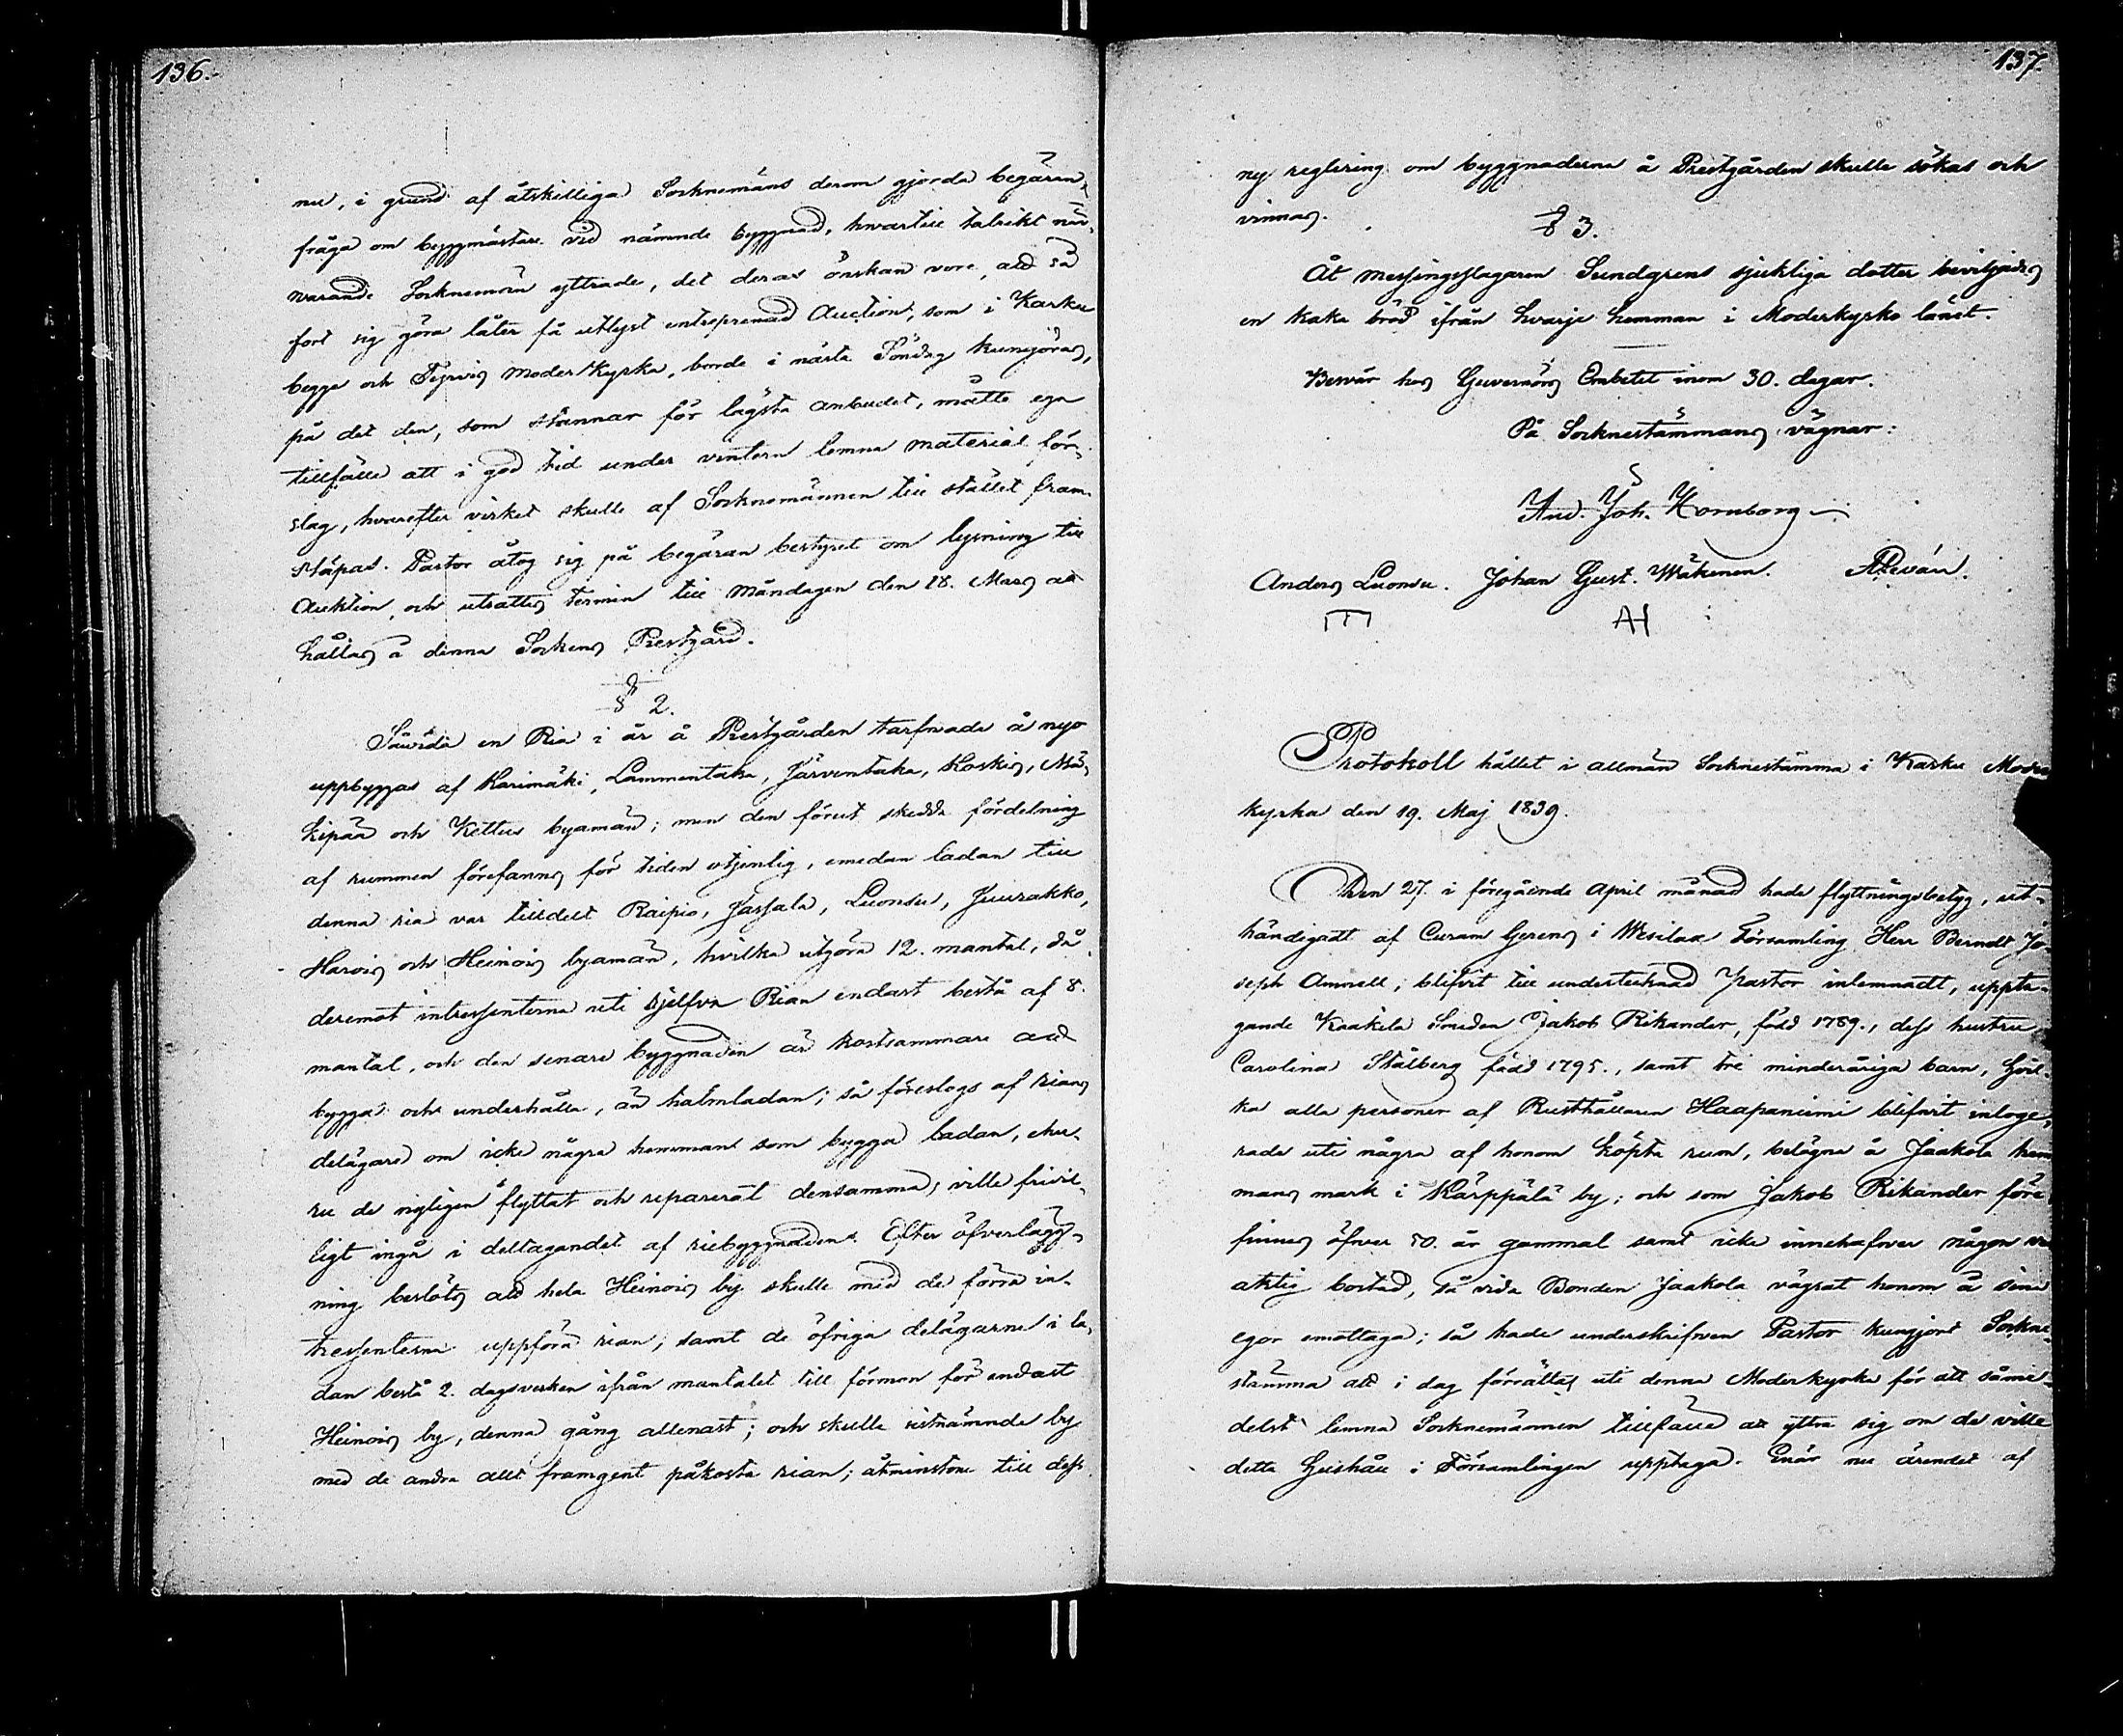 136.
nu, i grund af åtskilliga Socknemäns derom gjorda begäran,
fråga om byggmästare vid nämnde byggnad, hvartill talrikt när-
warande Socknemän yttrade, det deras önskan vore, att så
fort sig göra låter få utlyst entreprenad Auction, som i Karku
begge och Tyrvis Moder Kyrka, borde i nästa Söndag kungöras,
på det den, som stannar för lägsta anbudet, måtte ega
tillfälle att i god tid under vintern lemna material för-
slag, hvarefter virket skulle af Socknemännen till stället fram-
släpas. Pastor åtog sig på begäran bestyret om lysning till
Auktion, och utsattes termin till Måndagen den 18. Mars att
hållas å denna Sockens Prestgård.
§ 2.
Såvida en Ria i år å Prestgården tarfvade å nyo
uppbyggas af Karimäki, Lammentaka, Järventaka, Koskis, Mä-
kipää och Kettus byamän; men den förut skedda fördelning
af rummen förefanns för tiden otjenlig, emedan ladan till
denna ria var tilldelt Raipio, Jassala, Luonsu, Juurakko,
Harois och Heinois byamän, hvilka utgöra 12. mantal, då
deremot intressenterna uti sjelfva Rian endast bestå af 8.
mantal, och den senare byggnaden är kostsammare att
bygga och underhålla, än halmladan; så föreslogs af rians
delägare om icke några hemmans som bygga ladan, ehu-
ru de nyligen flyttat och reparerat densamma, ville frivil-
ligt ingå i deltagandet af riebyggnaden. Efter öfverlägg-
ning beslöts att hela Heinois by skulle med de förra in-
tressenterna uppföra rian, samt de öfriga delägarne i la-
dan bestå 2. dagsverken ifrån mantalet till förmon för endast
Heinois by, denna gång allenast; och skulle sistnämnde by
med de andra allt framgent påkosta rian; åtminstone till dess
137.
ny reglering om byggnaderna å Prestgården skulle sökas och
vinnas.
§ 3.
Åt messingsslagaren Sundgrens sjukliga dotter beviljades
en kaka bröd ifrån hvarje hemman i Moderkyrko länet.
Besvär hos Guvernörs Embetet inom 30. dagar.
På Socknestämmans vägnar:
And. Joh. Hornborg
Anders Luonsu. Johan Gust. Mäkinen.
AH
Protokoll hållet i allmän Socknestämma i Karku Moder
kyrka den 19. Maj 1839.
Den 27. i föregående April månad hade flyttningsbetyg, ut-
händigadt af Curam Gerens i Wesilax Församling Herr Berndt Jo-
seph Amnell; blifvit till undertecknad Pastor inlemnadt, uppta-
gande Kaakila Smeden Jakob Rikander, född 1789., dess hustru
Carolina Stålberg född 1795., samt tre minderåriga barn, hvil-
ka alla personer af Rusthållaren Haapaniemi blifvit inloge-
rade uti några af honom köpta rum, belägna å Jaakola hem
mans mark i Kärppälä by; och som Jakob Rikander före
finnes öfver 50. år gammal samt icke innehafver någon va
aktig bostad, så vida Bonden Jaakola vägrat honom å sina
egor emottaga; så hade underskrifven Pastor kungjort Sockne-
stämma att i dag förrättas uti denna Moderkyrka för att såme-
delst lemna Socknemännen tillfälle att yttra sig om de ville
detta Hushåll i Församlingen upptaga. Enär nu ärendet af